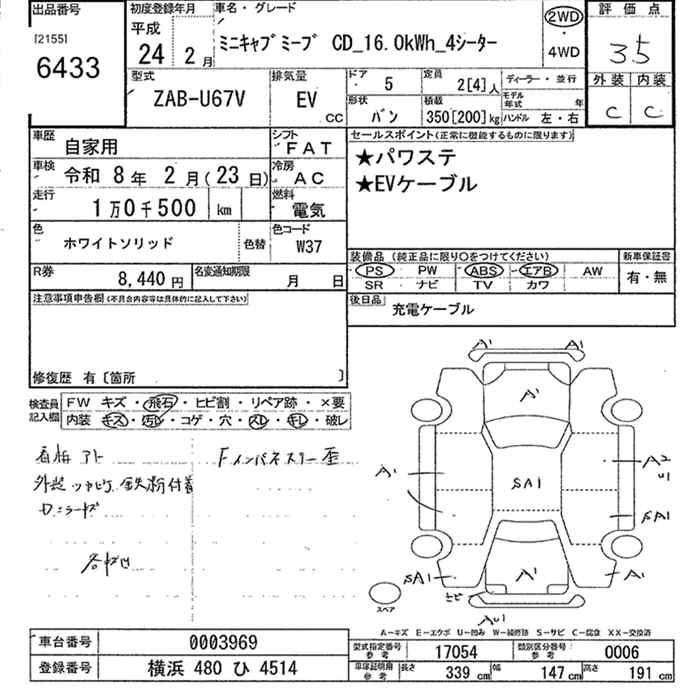 出品番号
[2155]
6433
初度登録年月
平成
24年 2月
車名・グレード
ミニキャブ ミーブ CD_16.0kWh_4シーター
2WD
・
4WD
評価点
3.5
外装 内装
C C
型式
ZAB-U67V
排気量
EV
CC
ドア
5
定員
2[4]人
ディーラー・並行
モデル年式 年
形状
バン
積載
350[200]kg
ハンドル 左・右
車歴
自家用
シフト
FAT
車検
令和 8年 2月(23日)
冷房
AC
走行
1万0千500 km
燃料
電気
色
ホワイトソリッド
色替
色コード
W37
R券
8,440円
名変通知期限
月 日
セールスポイント(正常に機能するものに限ります)
★パワステ
★EVケーブル
装備品 (純正品に限り○をつけてください)
PS PW ABS エアB AW
SR ナビ TV カワ
新車保証書
有・無
後日品
充電ケーブル
注意事項申告欄(不具合内容等は具体的に記入して下さい)
修復歴 有〔箇所 〕
検査員記入欄
FW キズ・飛石・ヒビ割・リペア跡・×要
内装 キズ・汚レ・コゲ・穴・スレ・キレ・破レ
看板アト
Fインパネスリ一歪
鉄粉付着
A'
A'
A'
A'
A2
U1
SA1
SA1
SA1
A'
ヒビ
AU1
スペア
A-キズ E-エクボ U-凹み W-補修跡 S-サビ C-腐食 XX-交換済
車台番号
0003969
登録番号
横浜 480 ひ 4514
型式指定番号
参考
17054
類別区分番号
参考
0006
車庫証明用
参考
長さ 339 cm
幅 147 cm
高さ 191 cm